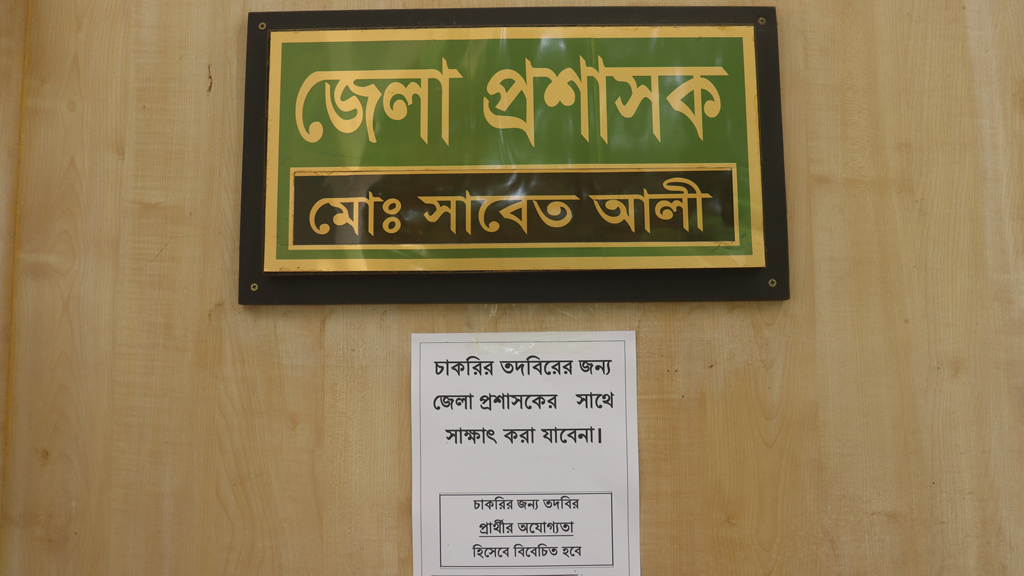 জেলা প্রশাসক
মোঃ সাবেত আলী
চাকরির তদবিরের জন্য
জেলা প্রশাসকের সাথে
সাক্ষাৎ করা যাবেনা।
চাকরির জন্য তদবির
প্রার্থীর অযোগ্যতা
হিসেবে বিবেচিত হবে